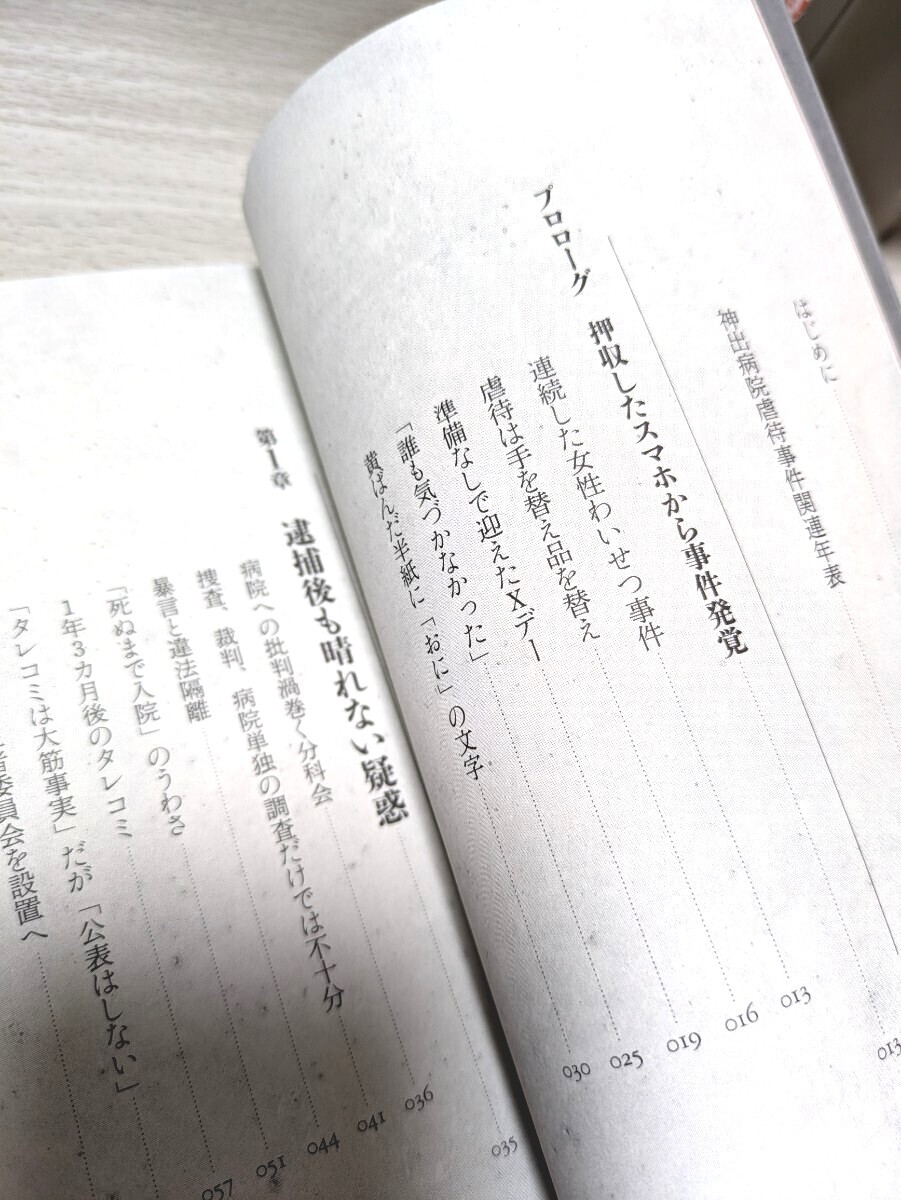 はじめに
神出病院虐待事件関連年表
プロローグ 押収したスマホから事件発覚 013
連続した女性わいせつ事件 013
虐待は手を替え品を替え 016
準備なしで迎えたXデー 019
「誰も気づかなかった」 025
黄ばんだ半紙に「おに」の文字 030
第1章 逮捕後も晴れない疑惑 035
病院への批判渦巻く分科会 036
捜査、裁判、病院単独の調査だけでは不十分 041
暴言と違法隔離 044
「死ぬまで入院」のうわさ 051
1年3カ月後のタレコミ 057
「タレコミは大筋事実」だが「公表はしない」
委員会を設置へ